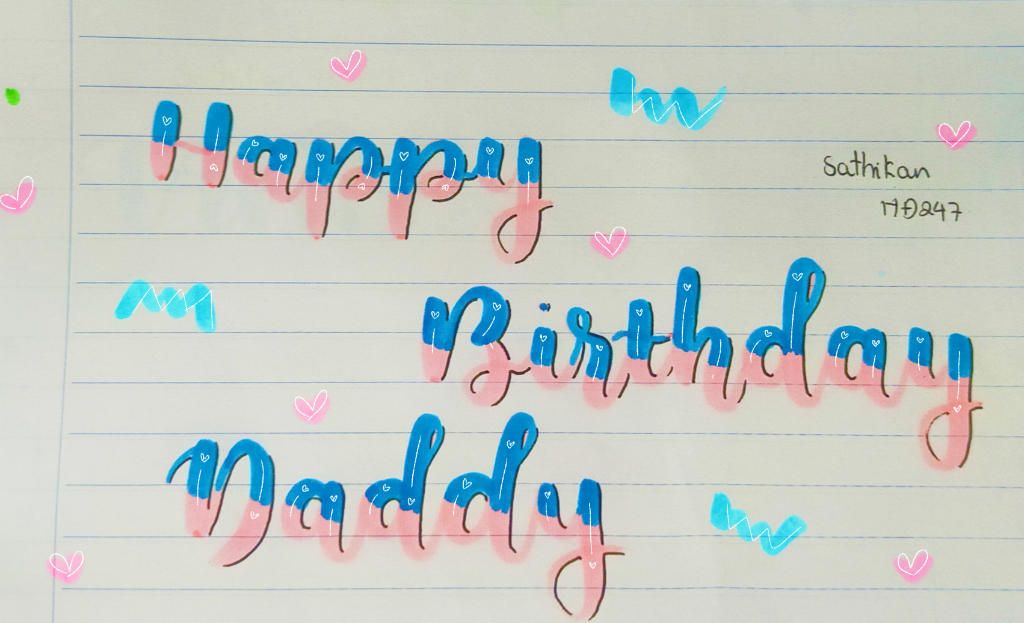 Happy
Sathikan
MD247
Birthday
Daddy